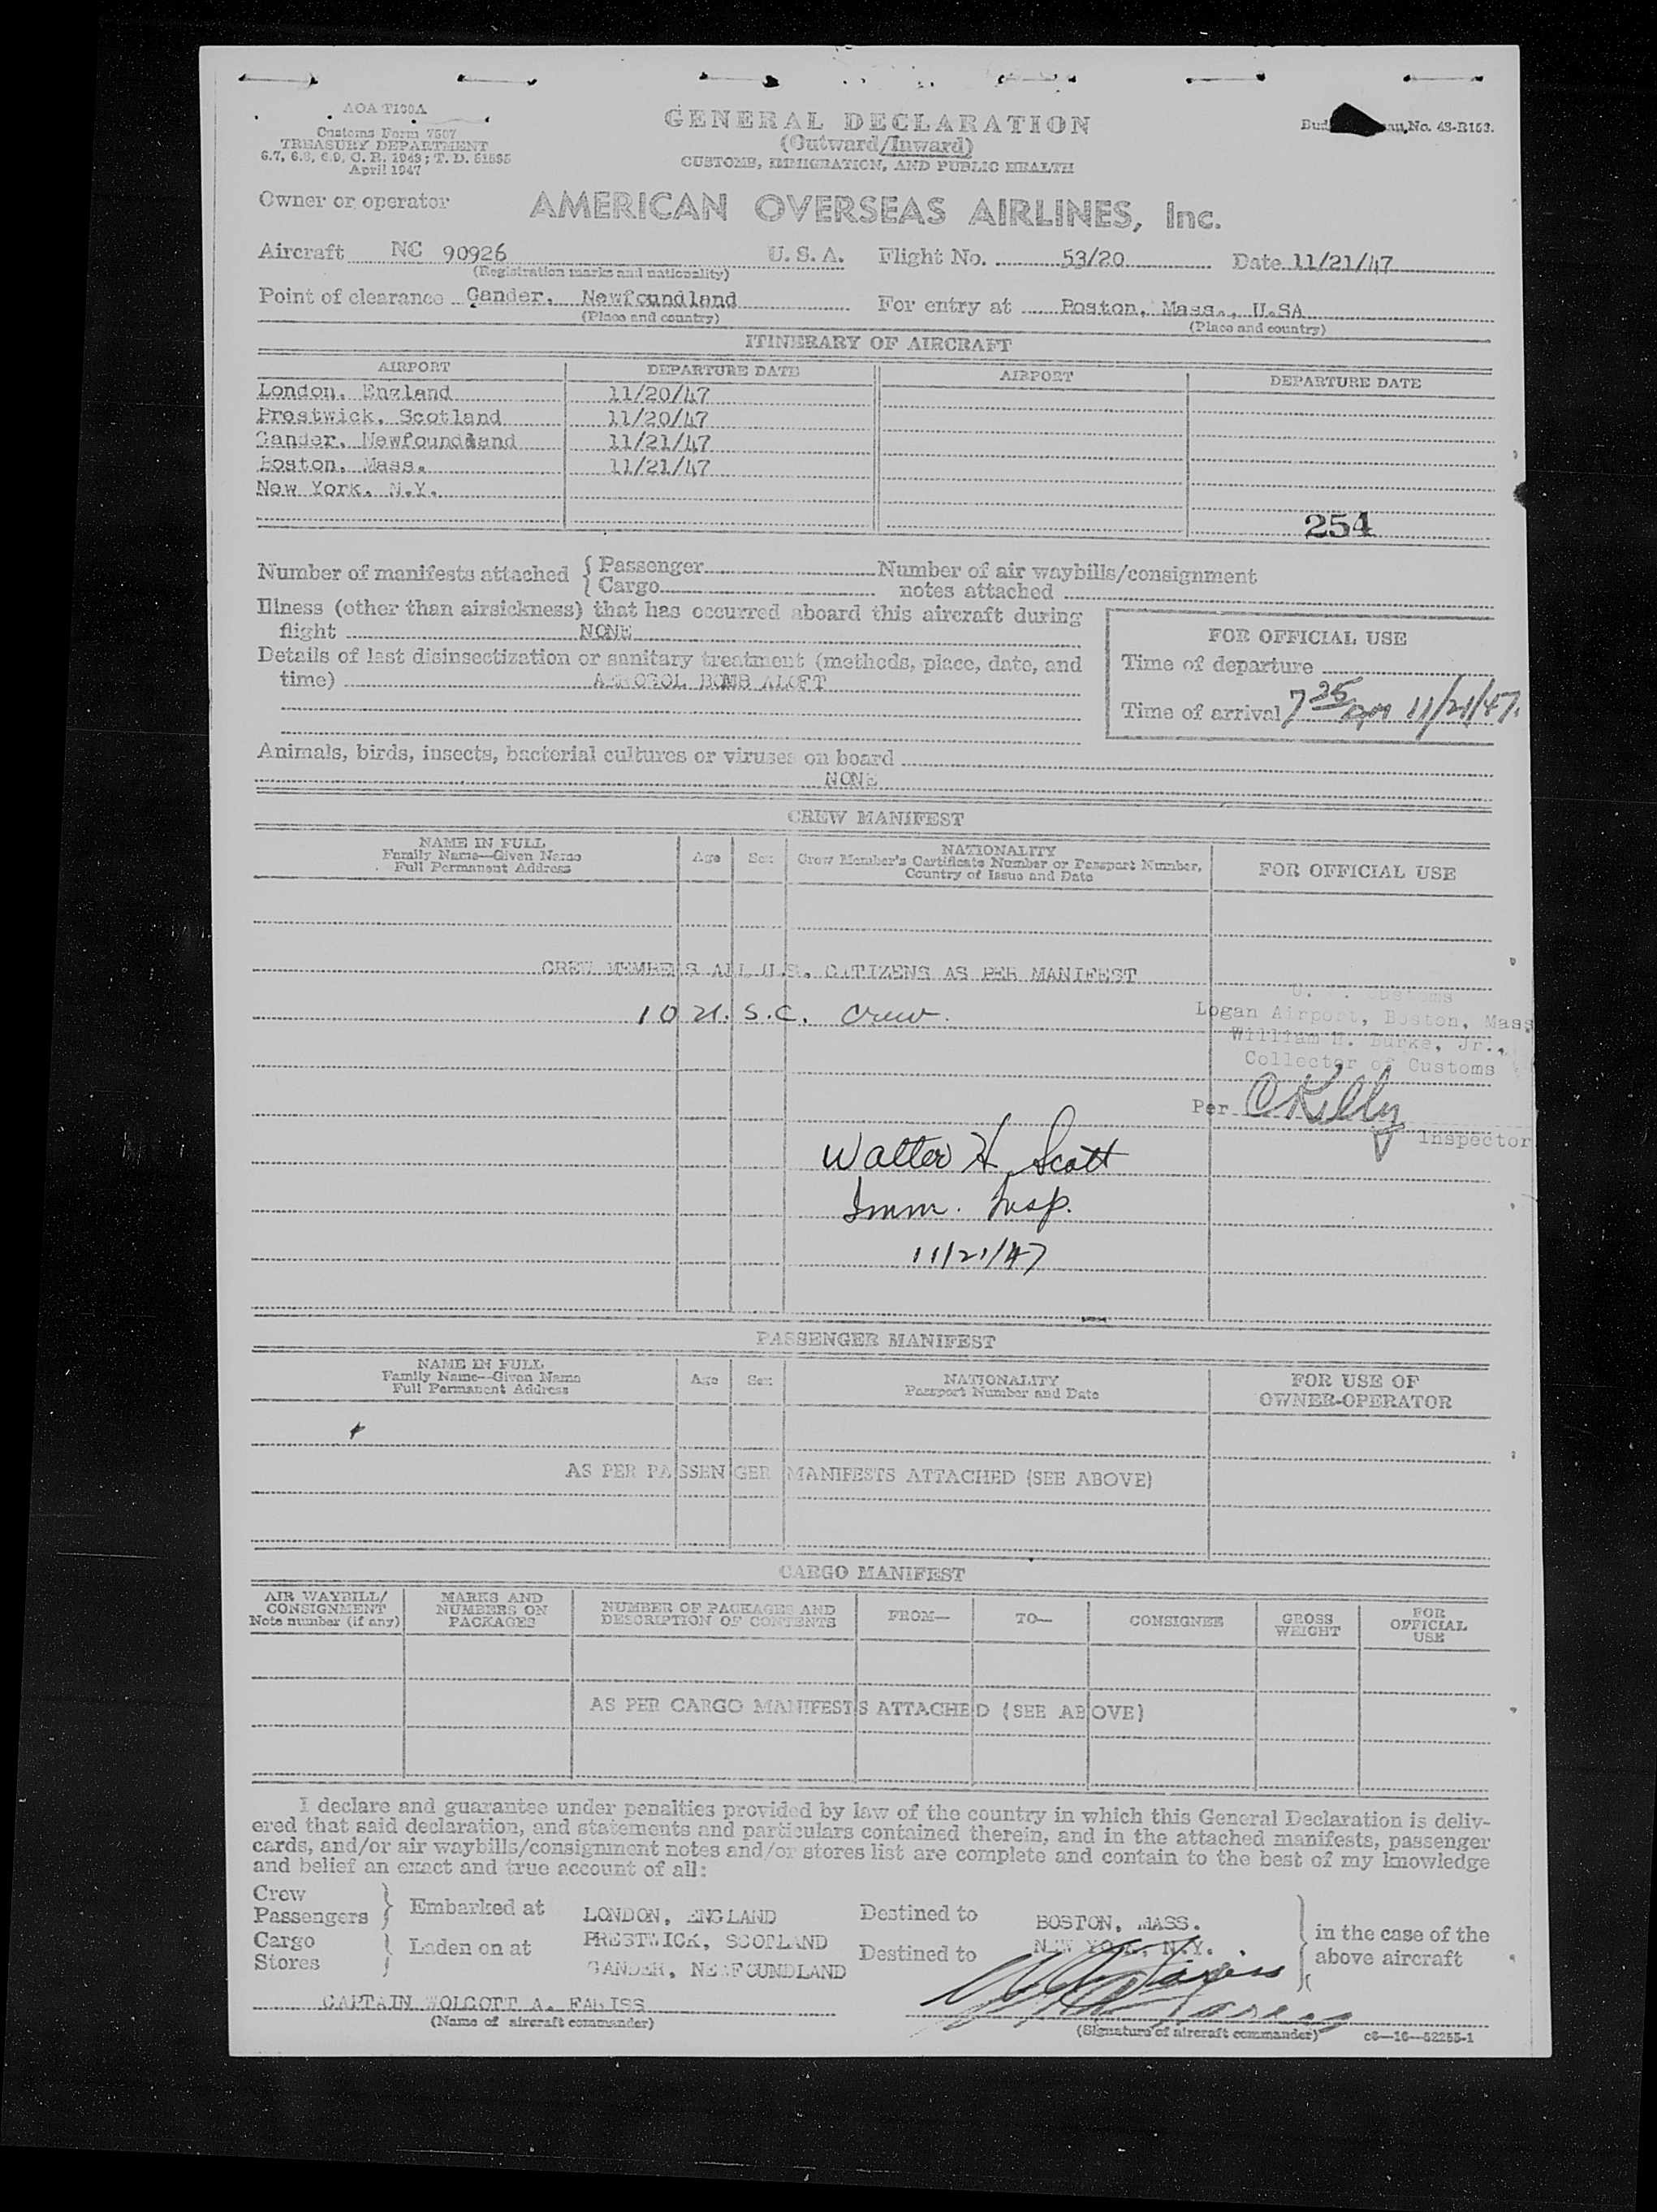 AOA T100A
Customs Form 7507
TREASURY DEPARTMENT
6.7, 6.8, 6.9, C. R. 1943; T. D. 51535
April 1947
GENERAL DECLARATION
(Outward/Inward)
CUSTOMS, IMMIGRATION, AND PUBLIC HEALTH
No. 43-R153.
Owner or operator AMERICAN OVERSEAS AIRLINES, Inc.
Aircraft NC 90926 U. S. A. Flight No. 53/20 Date 11/21/47
(Registration marks and nationality)
Point of clearance Gander, Newfoundland For entry at Boston, Mass., U.SA
(Place and country) (Place and country)
ITINERARY OF AIRCRAFT
AIRPORT DEPARTURE DATE AIRPORT DEPARTURE DATE
London, England 11/20/47
Prestwick, Scotland 11/20/47
Gander, Newfoundland 11/21/47
Boston, Mass. 11/21/47
New York, N.Y.
254
Number of manifests attached { Passenger Number of air waybills/consignment
Cargo notes attached
Illness (other than airsickness) that has occurred aboard this aircraft during
flight NONE
Details of last disinsectization or sanitary treatment (methods, place, date, and
time) AEROSOL BOMB ALOFT
FOR OFFICIAL USE
Time of departure
Time of arrival 7 25 PM 11/21/47.
Animals, birds, insects, bacterial cultures or viruses on board
NONE
CREW MANIFEST
NAME IN FULL
Family Name—Given Name
Full Permanent Address
Age Sex
NATIONALITY
Crew Member's Certificate Number or Passport Number,
Country of Issue and Date
FOR OFFICIAL USE
CREW MEMBERS ALL U.S. CITIZENS AS PER MANIFEST
10 U.S.C. Crew.
U. S. Customs
Logan Airport, Boston, Mass
William H. Burke, Jr.,
Collector of Customs
Per O Kelly
Inspector
Walter H. Scott
Imm. Insp.
11/21/47
PASSENGER MANIFEST
NAME IN FULL
Family Name—Given Name
Full Permanent Address
Age Sex
NATIONALITY
Passport Number and Date
FOR USE OF
OWNER-OPERATOR
AS PER PASSENGER MANIFESTS ATTACHED (SEE ABOVE)
CARGO MANIFEST
AIR WAYBILL/
CONSIGNMENT
Note number (if any)
MARKS AND
NUMBERS ON
PACKAGES
NUMBER OF PACKAGES AND
DESCRIPTION OF CONTENTS
FROM— TO— CONSIGNEE
GROSS
WEIGHT
FOR
OFFICIAL
USE
AS PER CARGO MANIFESTS ATTACHED (SEE ABOVE)
I declare and guarantee under penalties provided by law of the country in which this General Declaration is deliv-
ered that said declaration, and statements and particulars contained therein, and in the attached manifests, passenger
cards, and/or air waybills/consignment notes and/or stores list are complete and contain to the best of my knowledge
and belief an exact and true account of all:
Crew
Passengers } Embarked at LONDON, ENGLAND Destined to BOSTON, MASS.
Cargo
Stores } Laden on at PRESTWICK, SCOTLAND Destined to NEW YORK, N.Y.
GANDER, NEWFOUNDLAND
in the case of the
above aircraft
CAPTAIN WOLCOTT A. FARISS
(Name of aircraft commander)
(Signature of aircraft commander) c8—16—52255-1